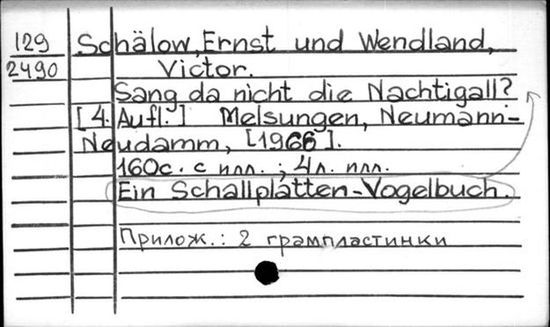 129
2490
Schälow, Ernst und Wendland,
Victor.
Sang da nicht die Nachtigall?
[4. Aufl.] Melsungen, Neumann-
Neudamm, [1966].
160с. с илл.; 4л. илл.
Ein Schallplatten-Vogelbuch.
Прилож.: 2 грампластинки